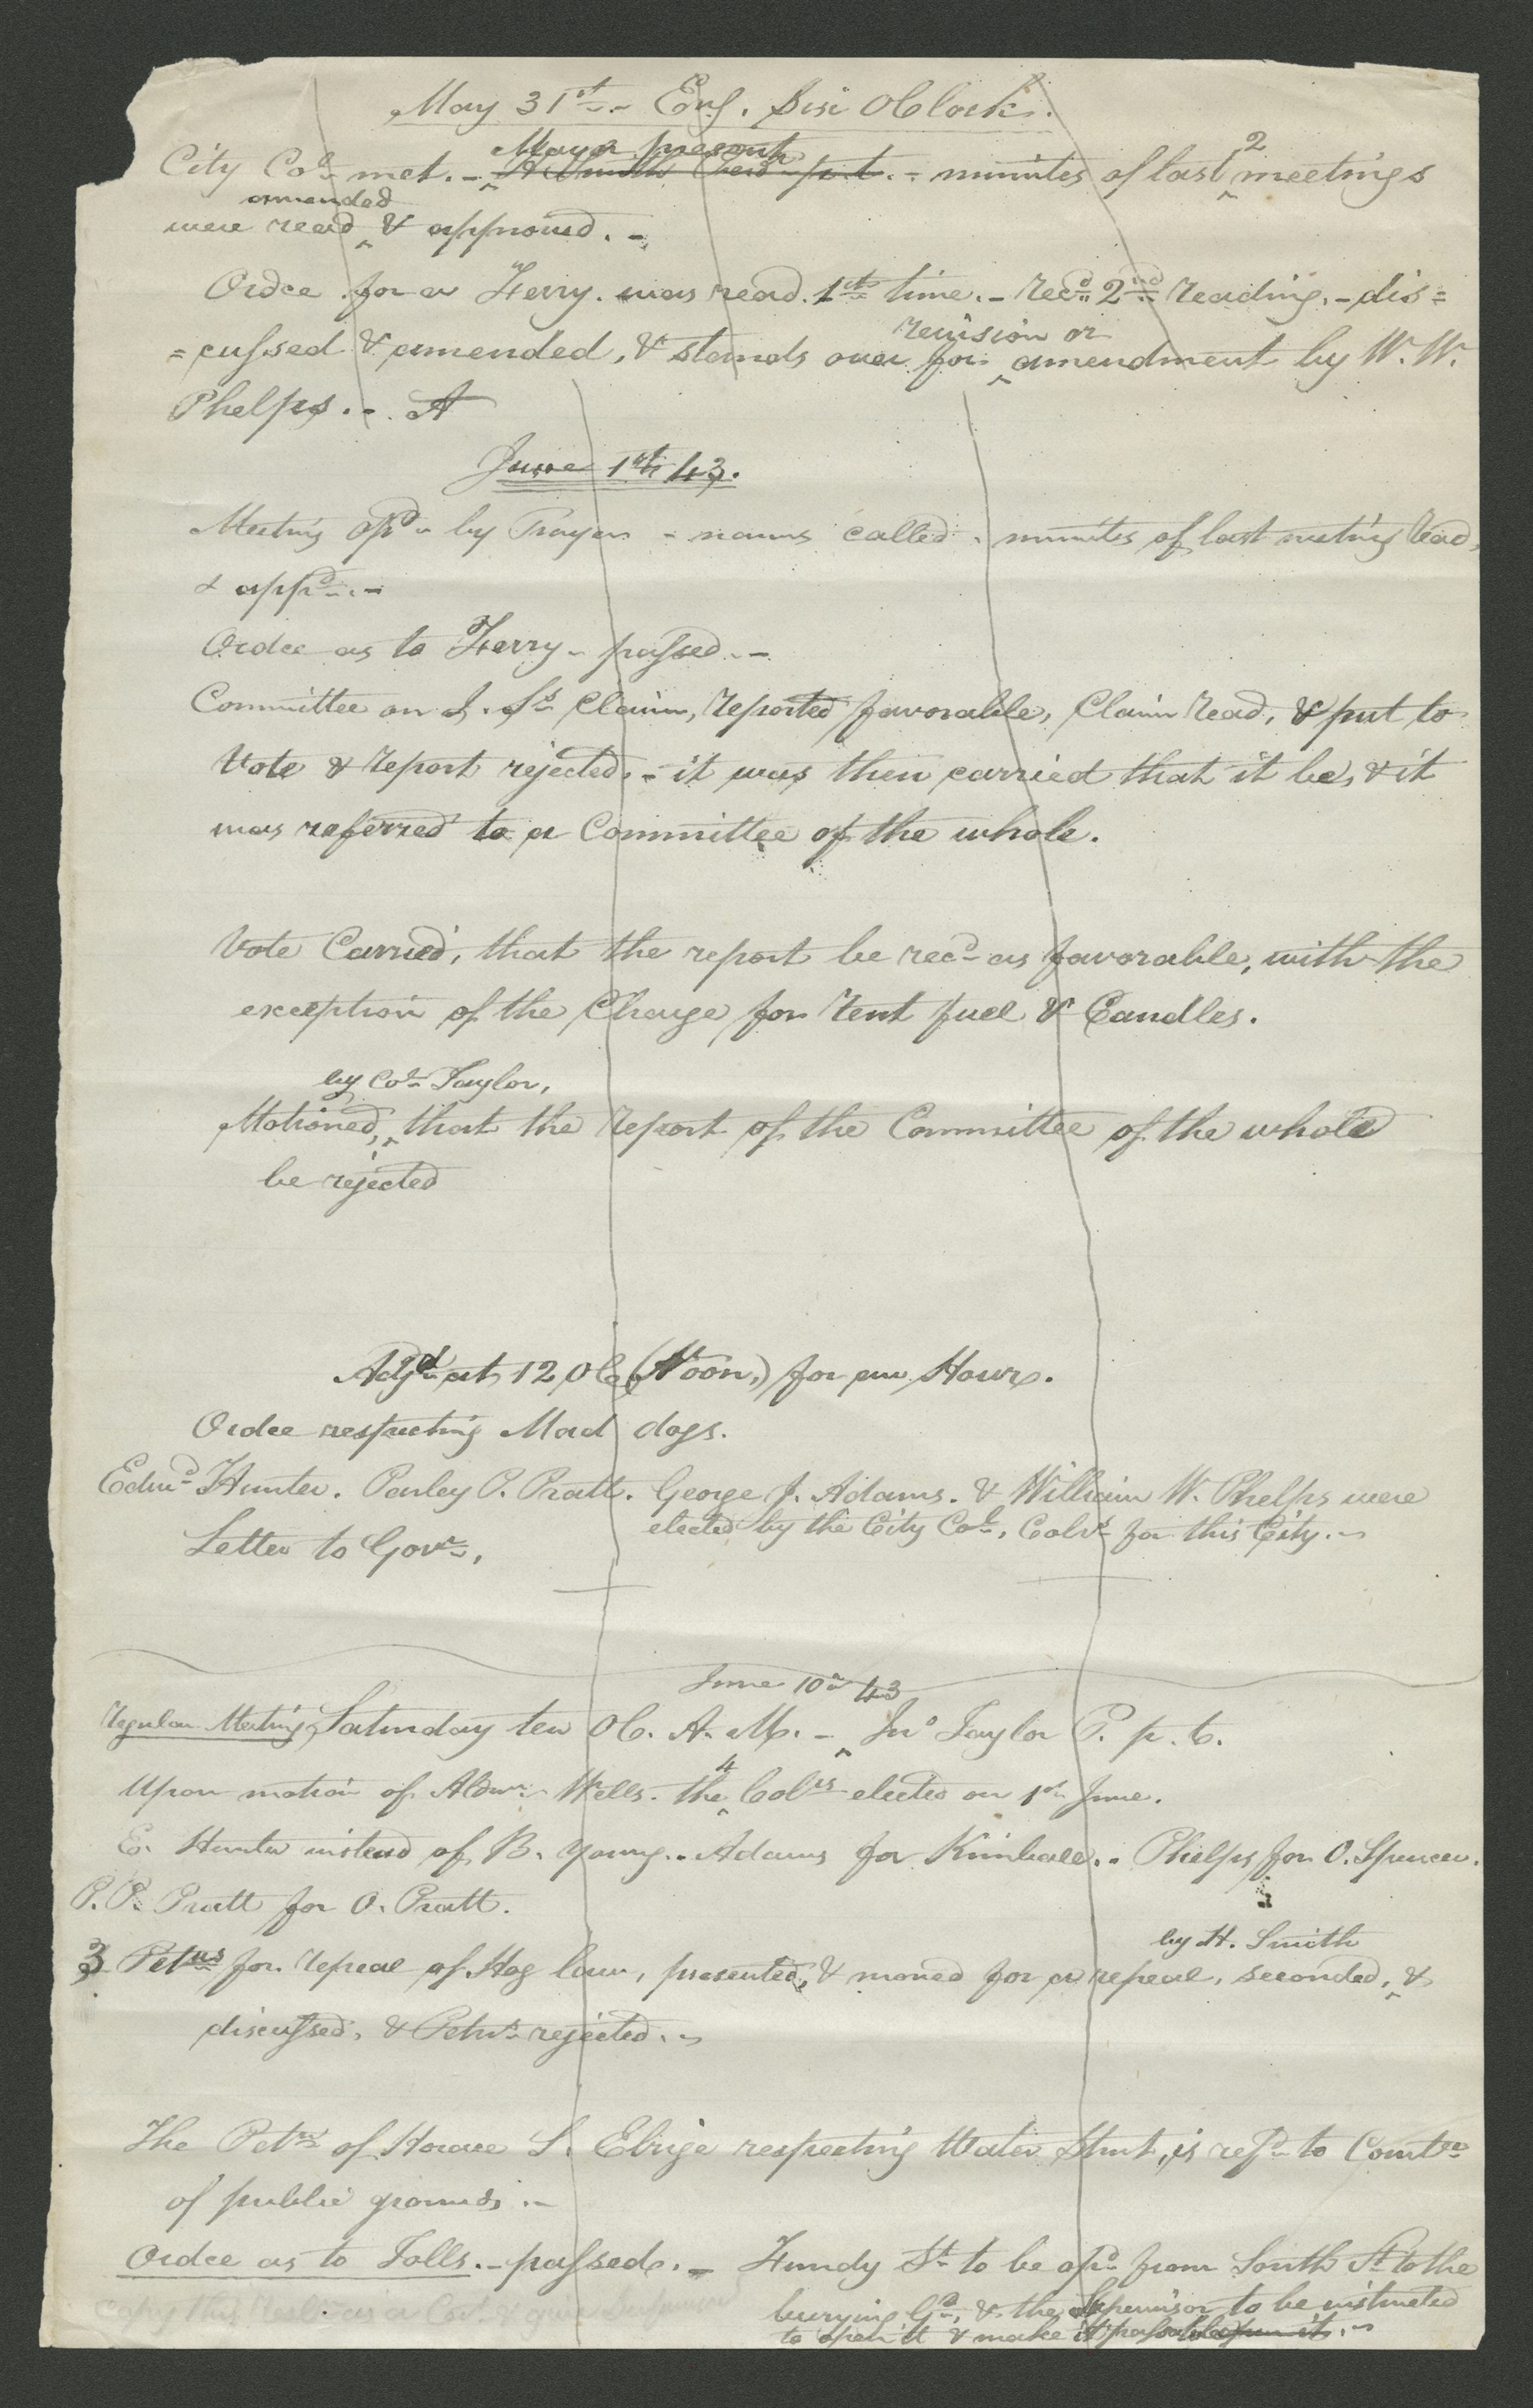 May 31st.- Eng. Six OClock.
Mayor present 2
City Col met. - H Smith Presd p. t. - minutes of last meetings
amended
were read & approved. -
Ordce for a Ferry. was read 1st time. - recd 2nd reading. - dis=
revision or
=cussed & amended, & stands over for amendment by W. W.
Phelps. - A
June 1st 43.
Meeting opd by Prayer - names called. minutes of last meeting read,
& appd. -
Ordce as to Ferry - passed. -
Committee on J. Ss Claim, reported favorable, Claim read, & put to
Vote & report rejected. - it was then carried that it be, & it
was referred to a Committee of the whole.
Vote Carried, that the report be recd as favorable, with the
exception of the Charge for rent fuel & Candles.
by Col Taylor,
Motioned, that the report of the Committee of the whole
be rejected
Adjd at 12 OC (Noon,) for an Hour.
Ordce respecting Mad dogs.
Edwd Hunter. Parley P. Pratt. George J. Adams. & William W. Phelps were
elected by the City Col, Colrs for this City. -
Letter to Govr,
June 10th 43
Regular Meeting, Saturday ten OC. A. M. - Jno Taylor P. p. t.
4
Upon motion of Aldn Wells. the Colrs elected on 1st June.
E. Hunter instead of B. Young. - Adams for Kimball. - Phelps for O. Spencer.
P. P. Pratt for O. Pratt.
by H. Smith
3 Petns for repeal of Hog law, presented, & moved for a repeal, seconded, &
discussed, & Petns rejected. -
The Petn of Horace S. Elrige respecting Water Street, is refd to Comtee
of public grounds. -
Ordce as to Tolls. - passed. - Fundy St to be opd from South St to the
burying Gd, & the Supervisor to be instructed
to open it & make it passable open it. -
copy this